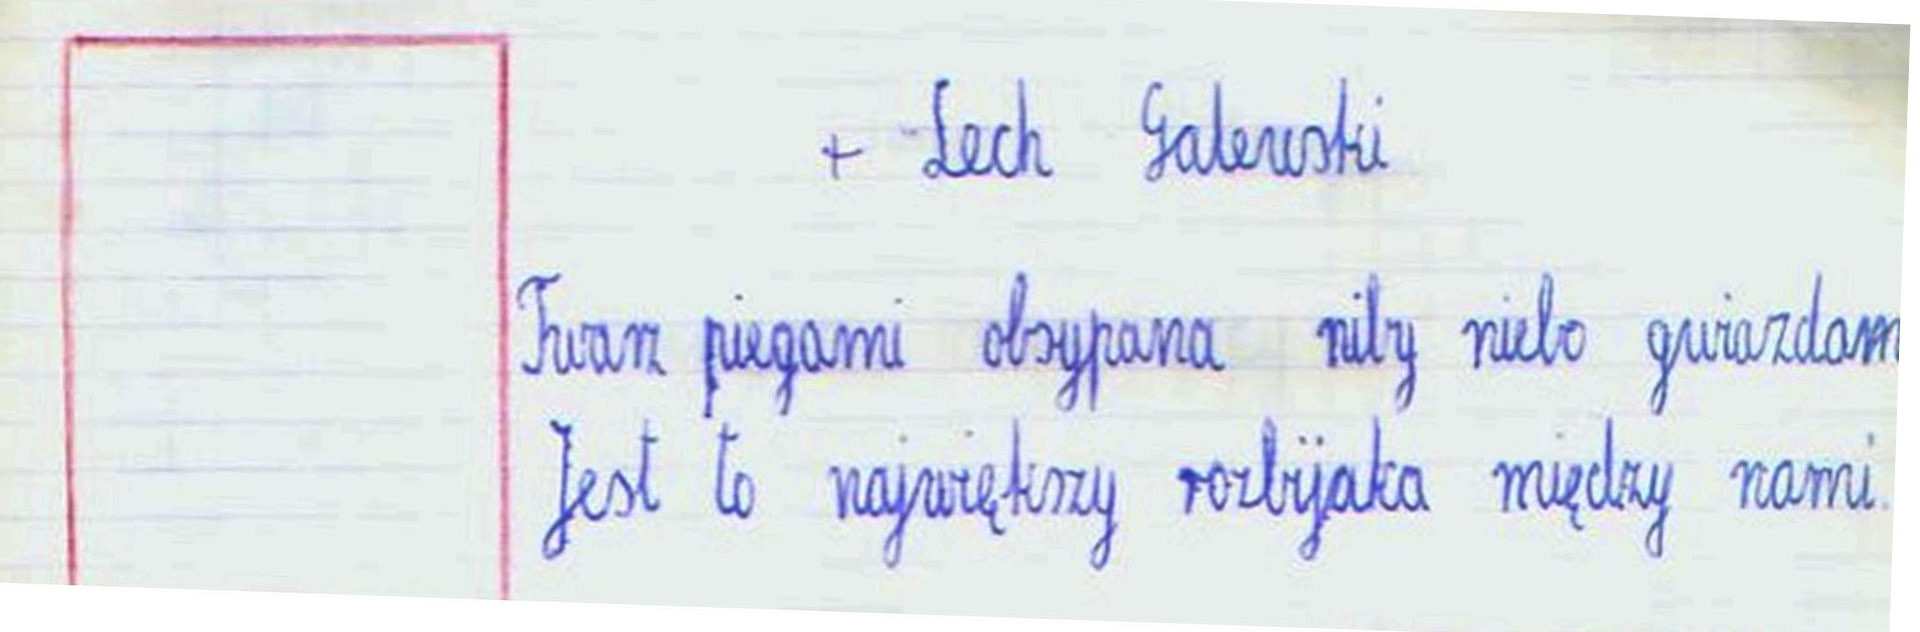 + Lech Galewski
Twarz piegami obsypana niby niebo gwiazdam
Jest to największy rozbijaka między nami.